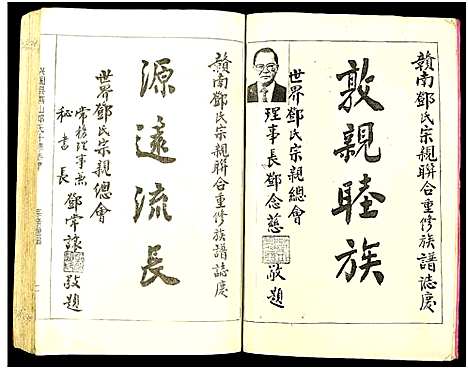 贛南鄧氏宗親聯合重修族譜誌慶
敦親睦族
世界鄧氏宗親總會
理事長鄧念慈
敬題
贛南鄧氏宗親聯合重修族譜誌慶
源遠流長
世界鄧氏宗親總會
常務理事兼
秘書長
鄧常諒
敬題